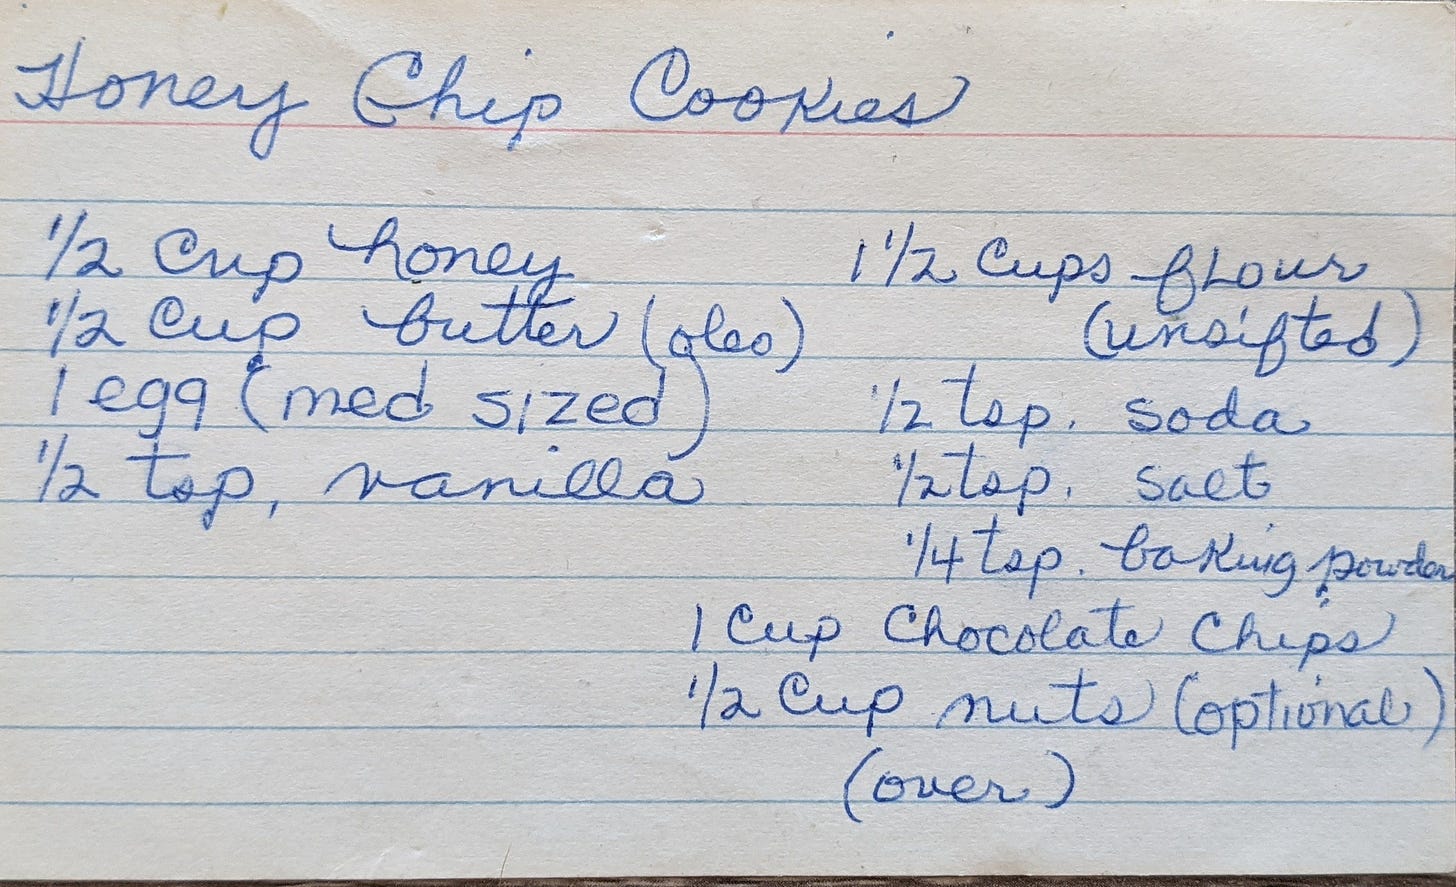 Honey Chip Cookies
1/2 Cup honey
1/2 Cup butter (oleo)
1 egg (med sized)
1/2 tsp. vanilla
1 1/2 Cups flour
(unsifted)
1/2 tsp. soda
1/2 tsp. salt
1/4 tsp. baking powder
1 Cup Chocolate Chips
1/2 Cup nuts (optional)
(over)